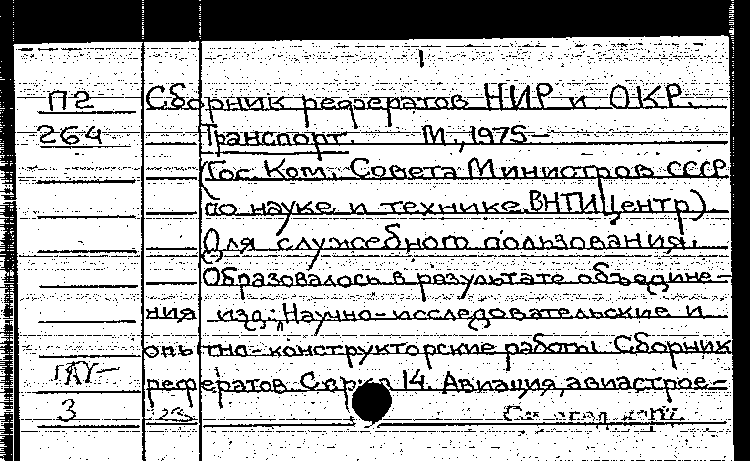 П2 Сборник рефератов НИР и ОКР.
264 Транспорт. М., 1975–
(Гос. Ком. Совета Министров СССР
по науке и технике. ВНТИЦентр).
Для служебного пользования.
Образовалось в результате объедине-
ния изд.: „Научно-исследовательские и
опытно-конструкторские работы. Сборник
рефератов Серия 14. Авиация, авиастрое-
3 23 См. след. карт.